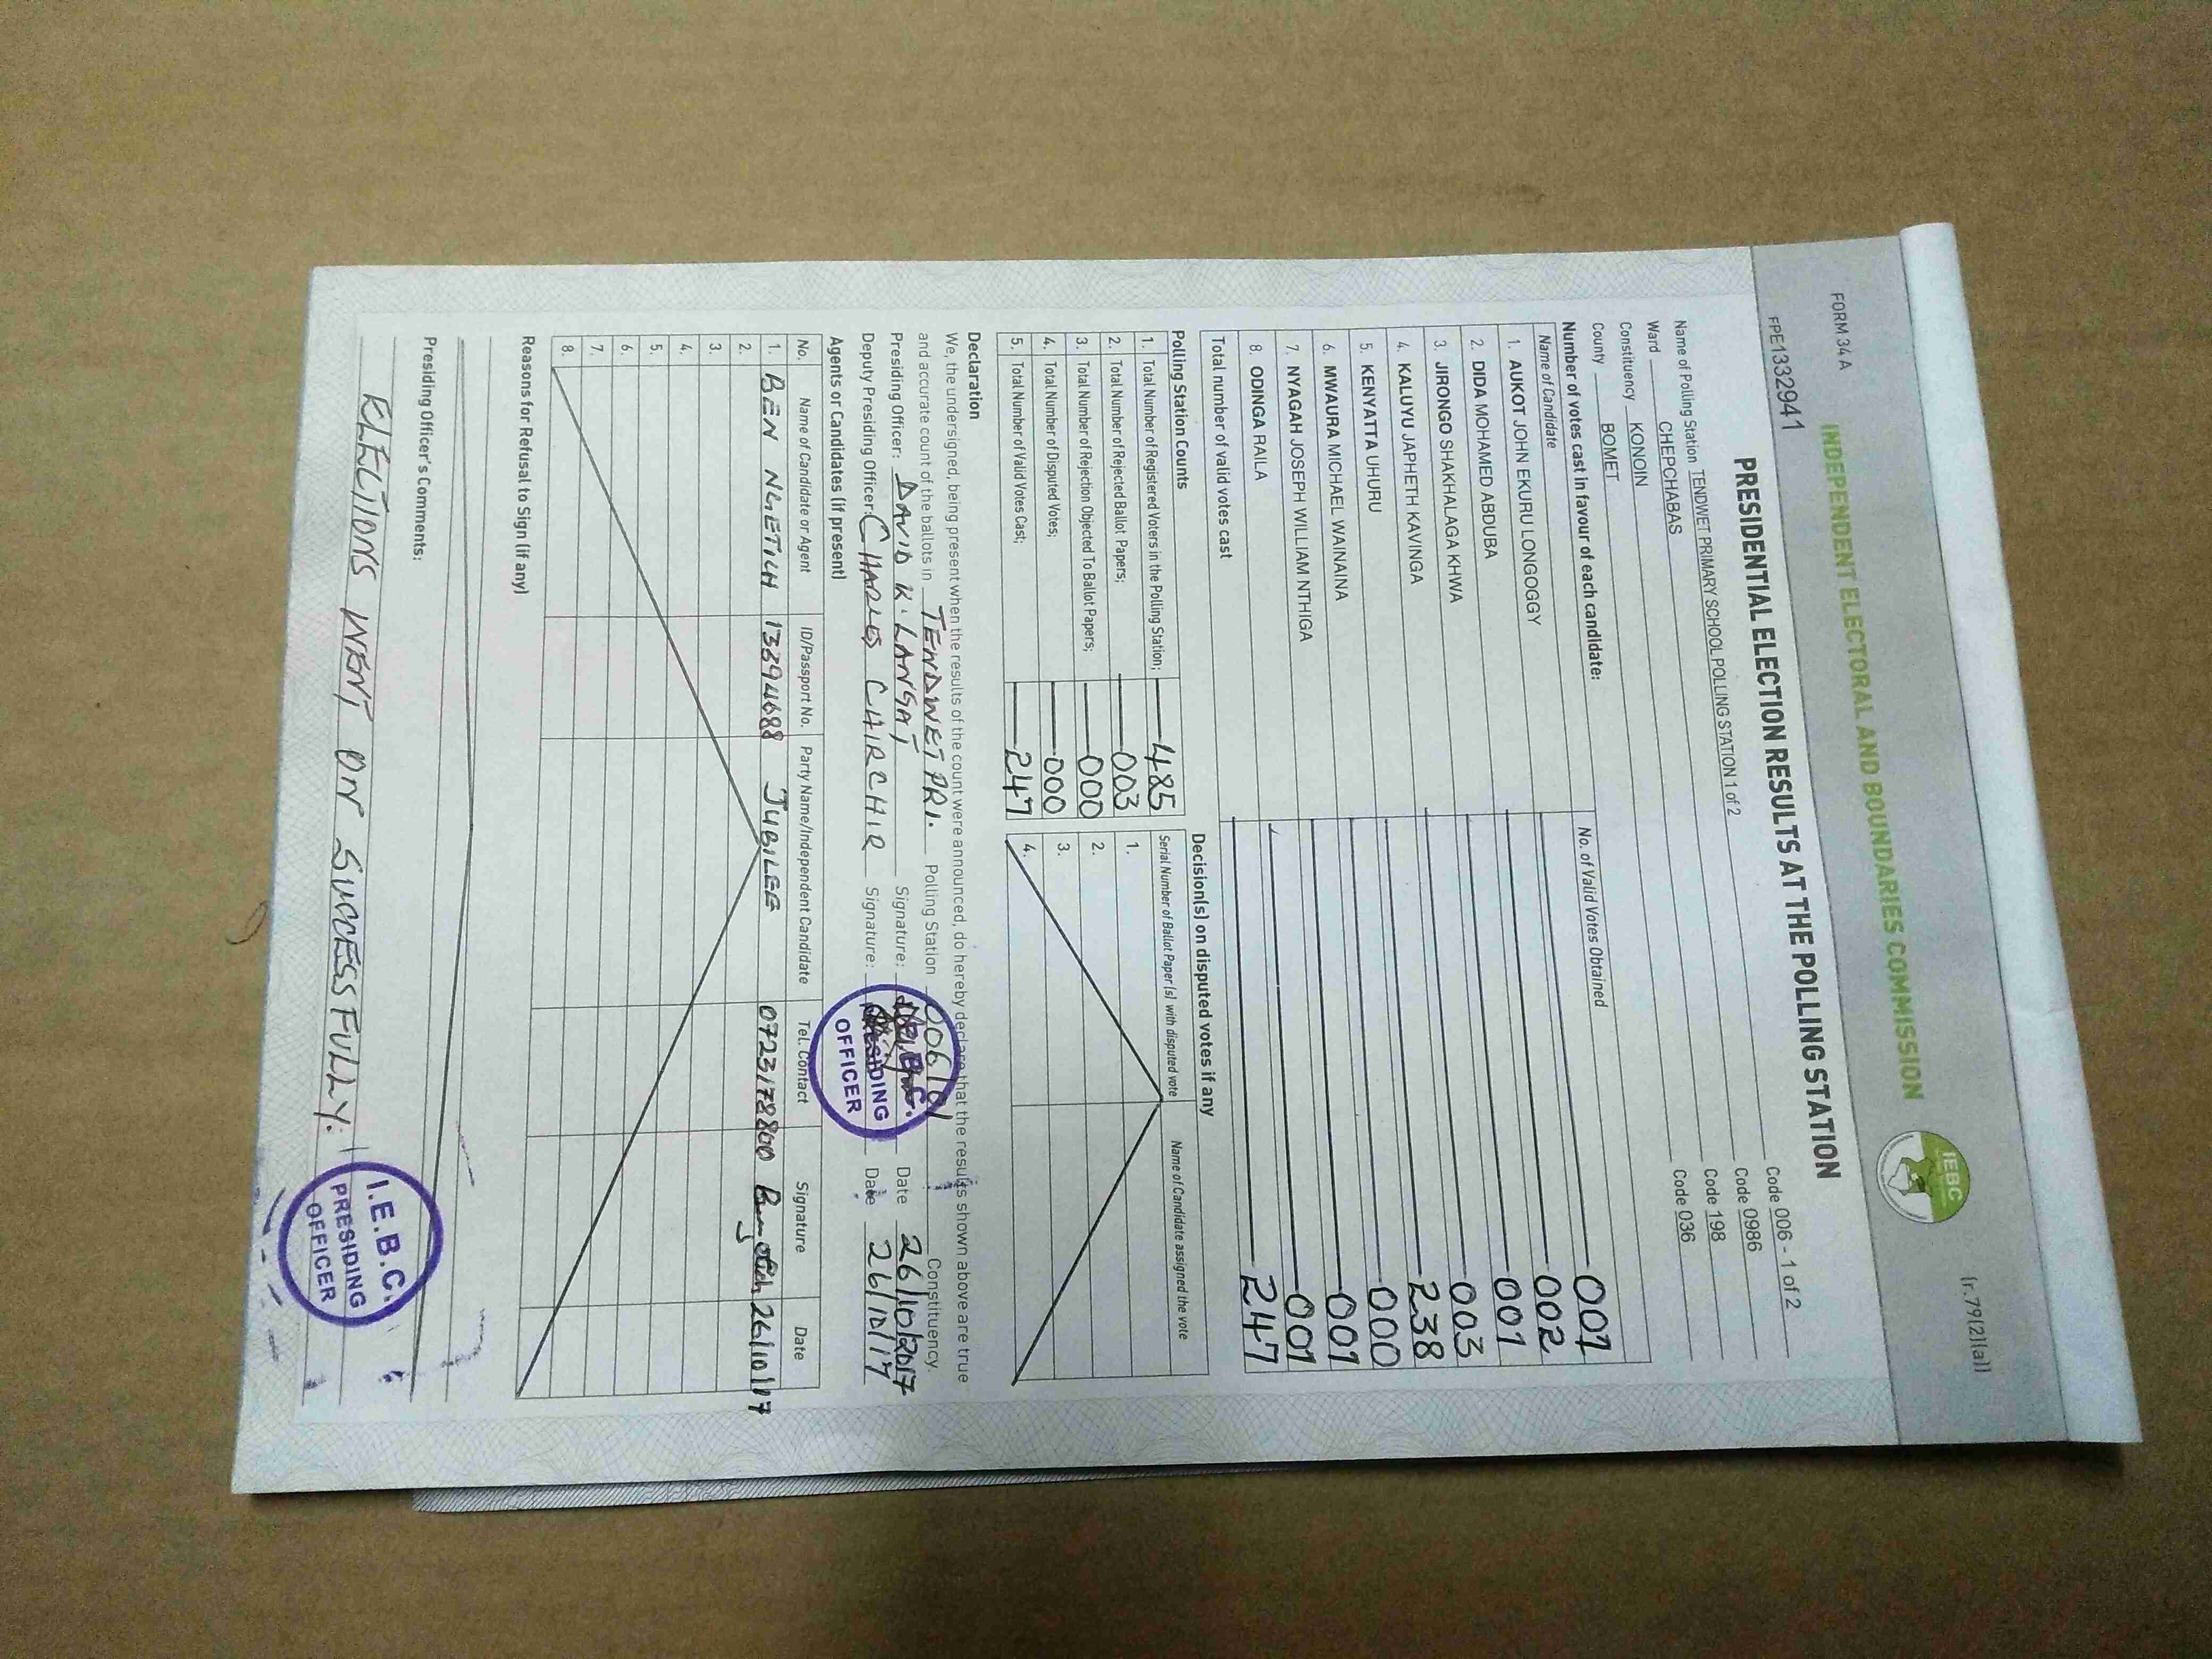 FORM 34 A
(r.79(2)(a))
INDEPENDENT ELECTORAL AND BOUNDARIES COMMISSION
IEBC
FPE1332941
PRESIDENTIAL ELECTION RESULTS AT THE POLLING STATION
Name of Polling Station TENDWET PRIMARY SCHOOL POLLING STATION 1 of 2 Code 006 - 1 of 2
Ward CHEPCHABAS Code 0986
Constituency KONOIN Code 198
County BOMET Code 036
Number of votes cast in favour of each candidate:
Name of Candidate No. of Valid Votes Obtained
1. AUKOT JOHN EKURU LONGOGGY 001
2. DIDA MOHAMED ABDUBA 002
3. JIRONGO SHAKHALAGA KHWA 001
4. KALUYU JAPHETH KAVINGA 003
5. KENYATTA UHURU 238
6. MWAURA MICHAEL WAINAINA 000
7. NYAGAH JOSEPH WILLIAM NTHIGA 001
8. ODINGA RAILA 001
Total number of valid votes cast 247
Polling Station Counts
1. Total Number of Registered Voters in the Polling Station; 485
2. Total Number of Rejected Ballot Papers; 003
3. Total Number of Rejection Objected To Ballot Papers; 000
4. Total Number of Disputed Votes; 000
5. Total Number of Valid Votes Cast; 247
Decision(s) on disputed votes if any
Serial Number of Ballot Paper (s) with disputed vote Name of Candidate assigned the vote
1.
2.
3.
4.
Declaration
We, the undersigned, being present when the results of the count were announced, do hereby declare that the results shown above are true
and accurate count of the ballots in TENDWET PRI. Polling Station Constituency.
Presiding Officer: DAVID K. LANGAT Signature: Date 26/10/2017
Deputy Presiding Officer: CHARLES CHIRCHIR Signature: Date 26/10/17
I.E.B.C.
PRESIDING
OFFICER
Agents or Candidates (if present)
No. Name of Candidate or Agent ID/Passport No. Party Name/Independent Candidate Tel. Contact Signature Date
1. BEN NGETICH 13394688 JUBILEE 0723178800 26/10/17
2.
3.
4.
5.
6.
7.
8.
Reasons for Refusal to Sign (if any)
Presiding Officer's Comments:
ELECTIONS WENT ON SUCCESSFULLY.
I.E.B.C.
PRESIDING
OFFICER